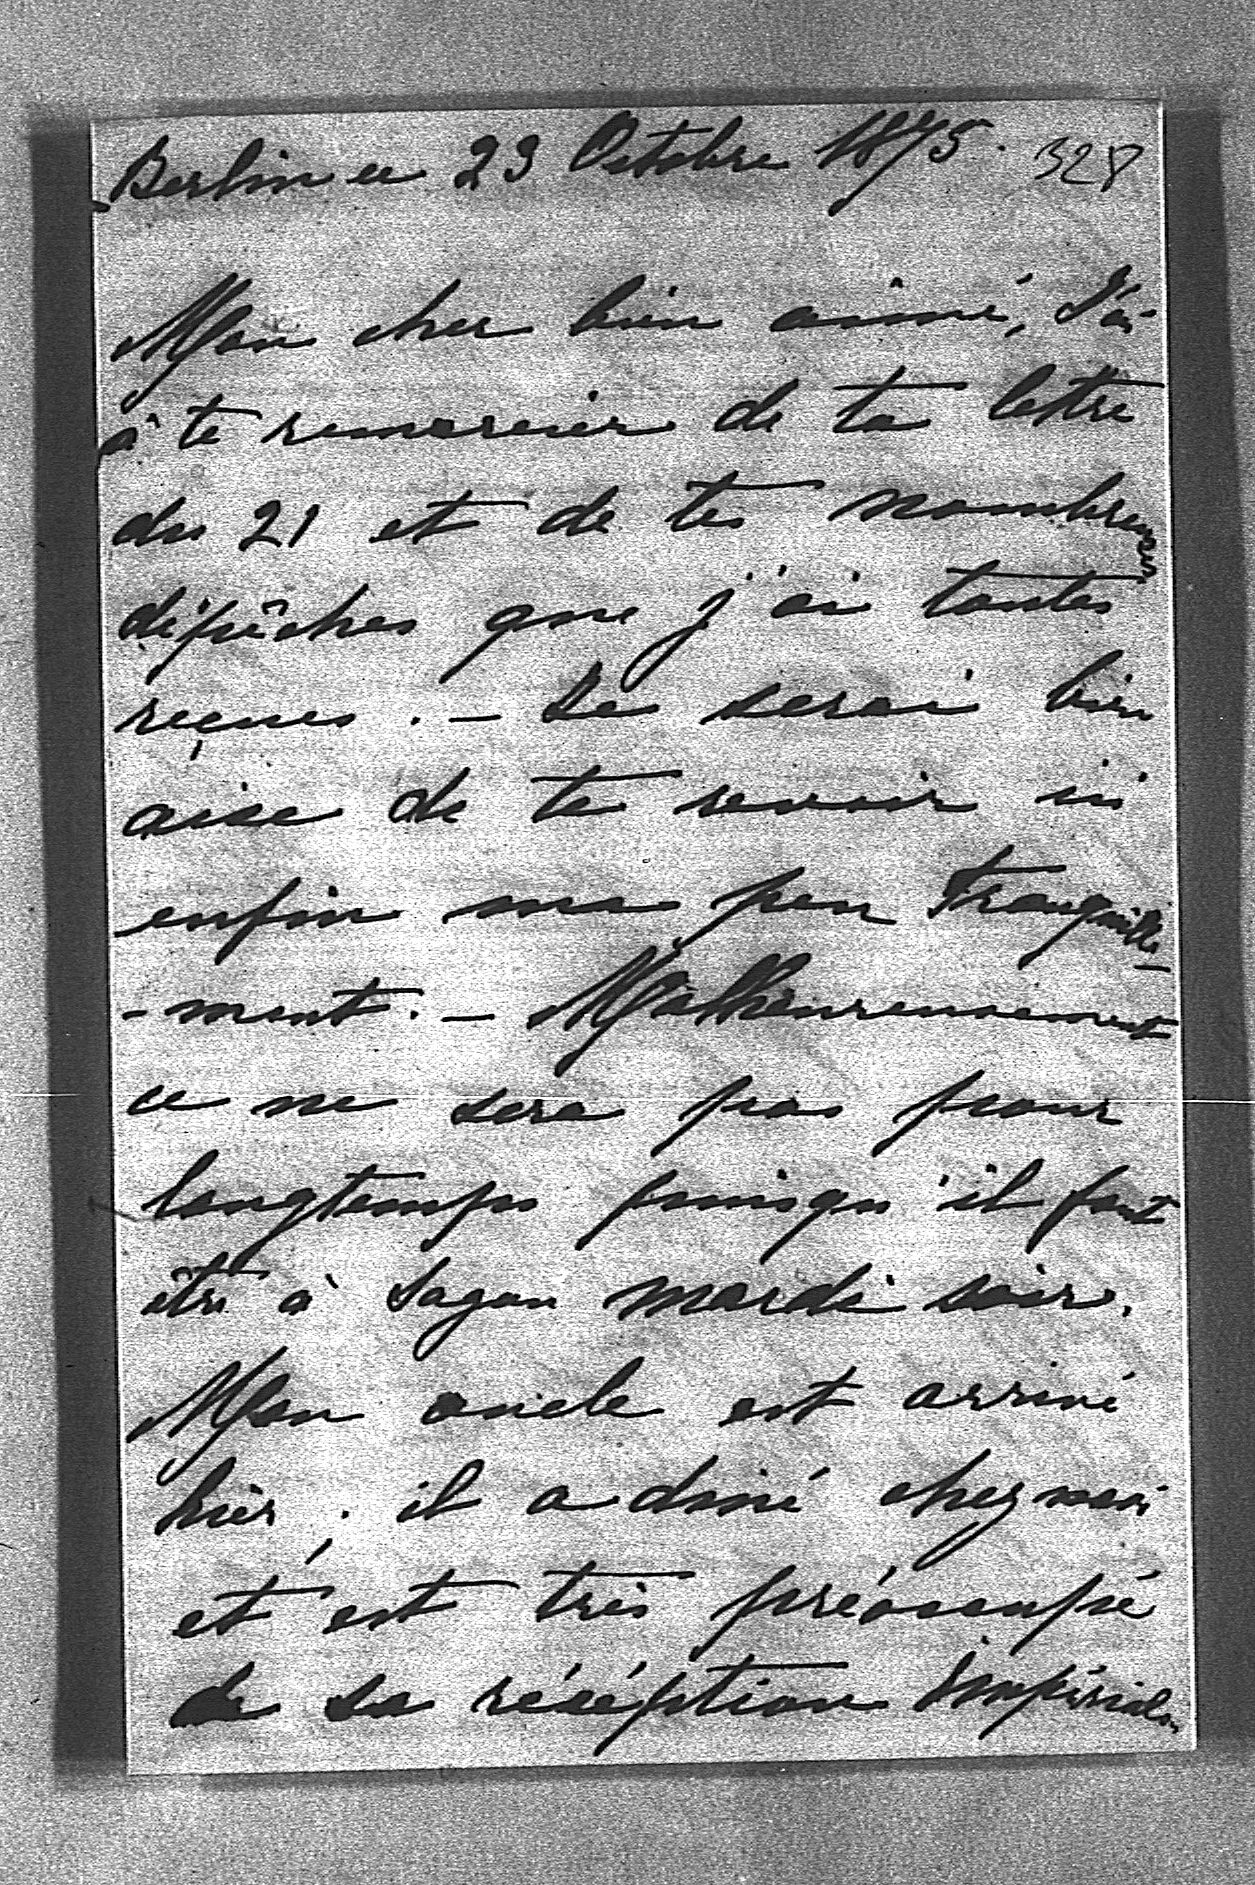 Berlin ce 23 Octobre 1875. 328
Mon cher bien aimé, J'ai
à te remercier de ta lettre
du 21 et de tes nombreuses
dépêches que j'ai toutes
reçues. – Je serai bien
aise de te revoir ici
enfin un peu tranquille-
-ment. – Malheureusement
ce ne sera pas pour
longtemps puisqu'il faut
être à Sagan mardi soir.
Mon oncle est arrivé
hier; il a dîné chez moi
et est très préoccupé
de sa réception Impériale